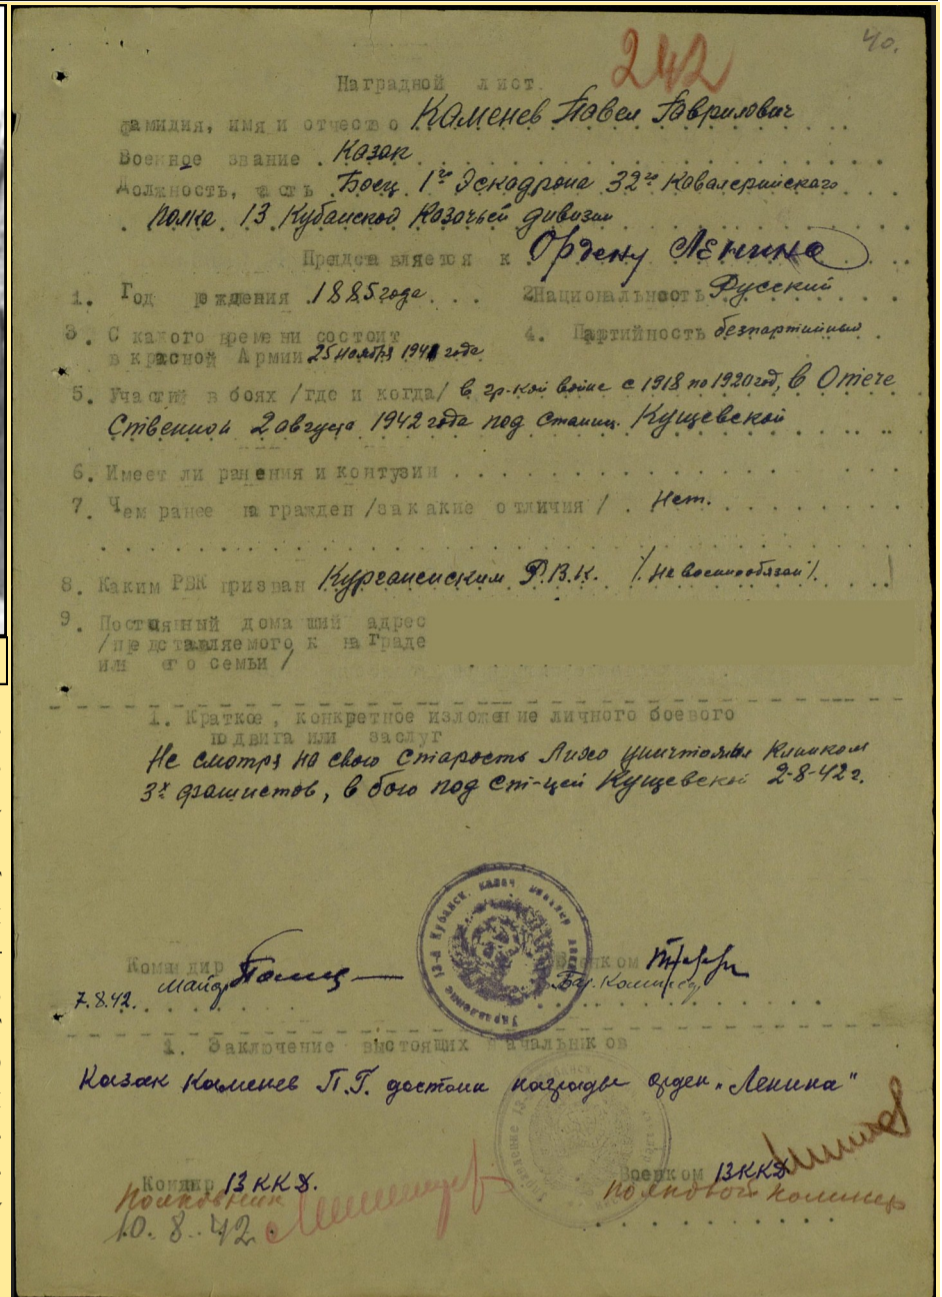 40.
242
Наградной лист.
Фамилия, имя и отчество Каменев Павел Гаврилович
Военное звание . Казак
Должность, часть Боец 1го Эскадрона 32го Кавалерийского
полка 13 Кубанской Казачьей дивизии
Представляется к Ордену Ленина
1. Год рождения 1885 года 2 Национальность Русский
3. С какого времени состоит 4. Партийность безпартийный
в красной Армии 25 ноября 1941 года
5. Участие в боях /где и когда/ в гр-кой войне с 1918 по 1920 год, в Отече
Ственной 2 августа 1942 года под станиц. Кущевской
6. Имеет ли ранения и контузии
7. Чем ранее награжден /за какие отличия/ . Нет.
8. Каким РВК призван Курганенским Р.В.К. /. Не военнообязан/.
9. Постоянный домашний адрес
/представляемого к награде
или его семьи/
1. Краткое, конкретное изложение личного боевого
подвига или заслуг
Не смотря на свою Старость Лихо уничтожил Клинком
3х фашистов, в бою под ст-цей Кущевской 2-8-42 г.
Командир Военком
майор Бат. Комиссар
7.8.42.
1. Заключение вытоящих начальников
Казак Каменев П.Г. достоин награды орден „Ленина"
Комдир 13 ККД. Военком 13 ККД
Полковник полковой комиссар
10.8.42